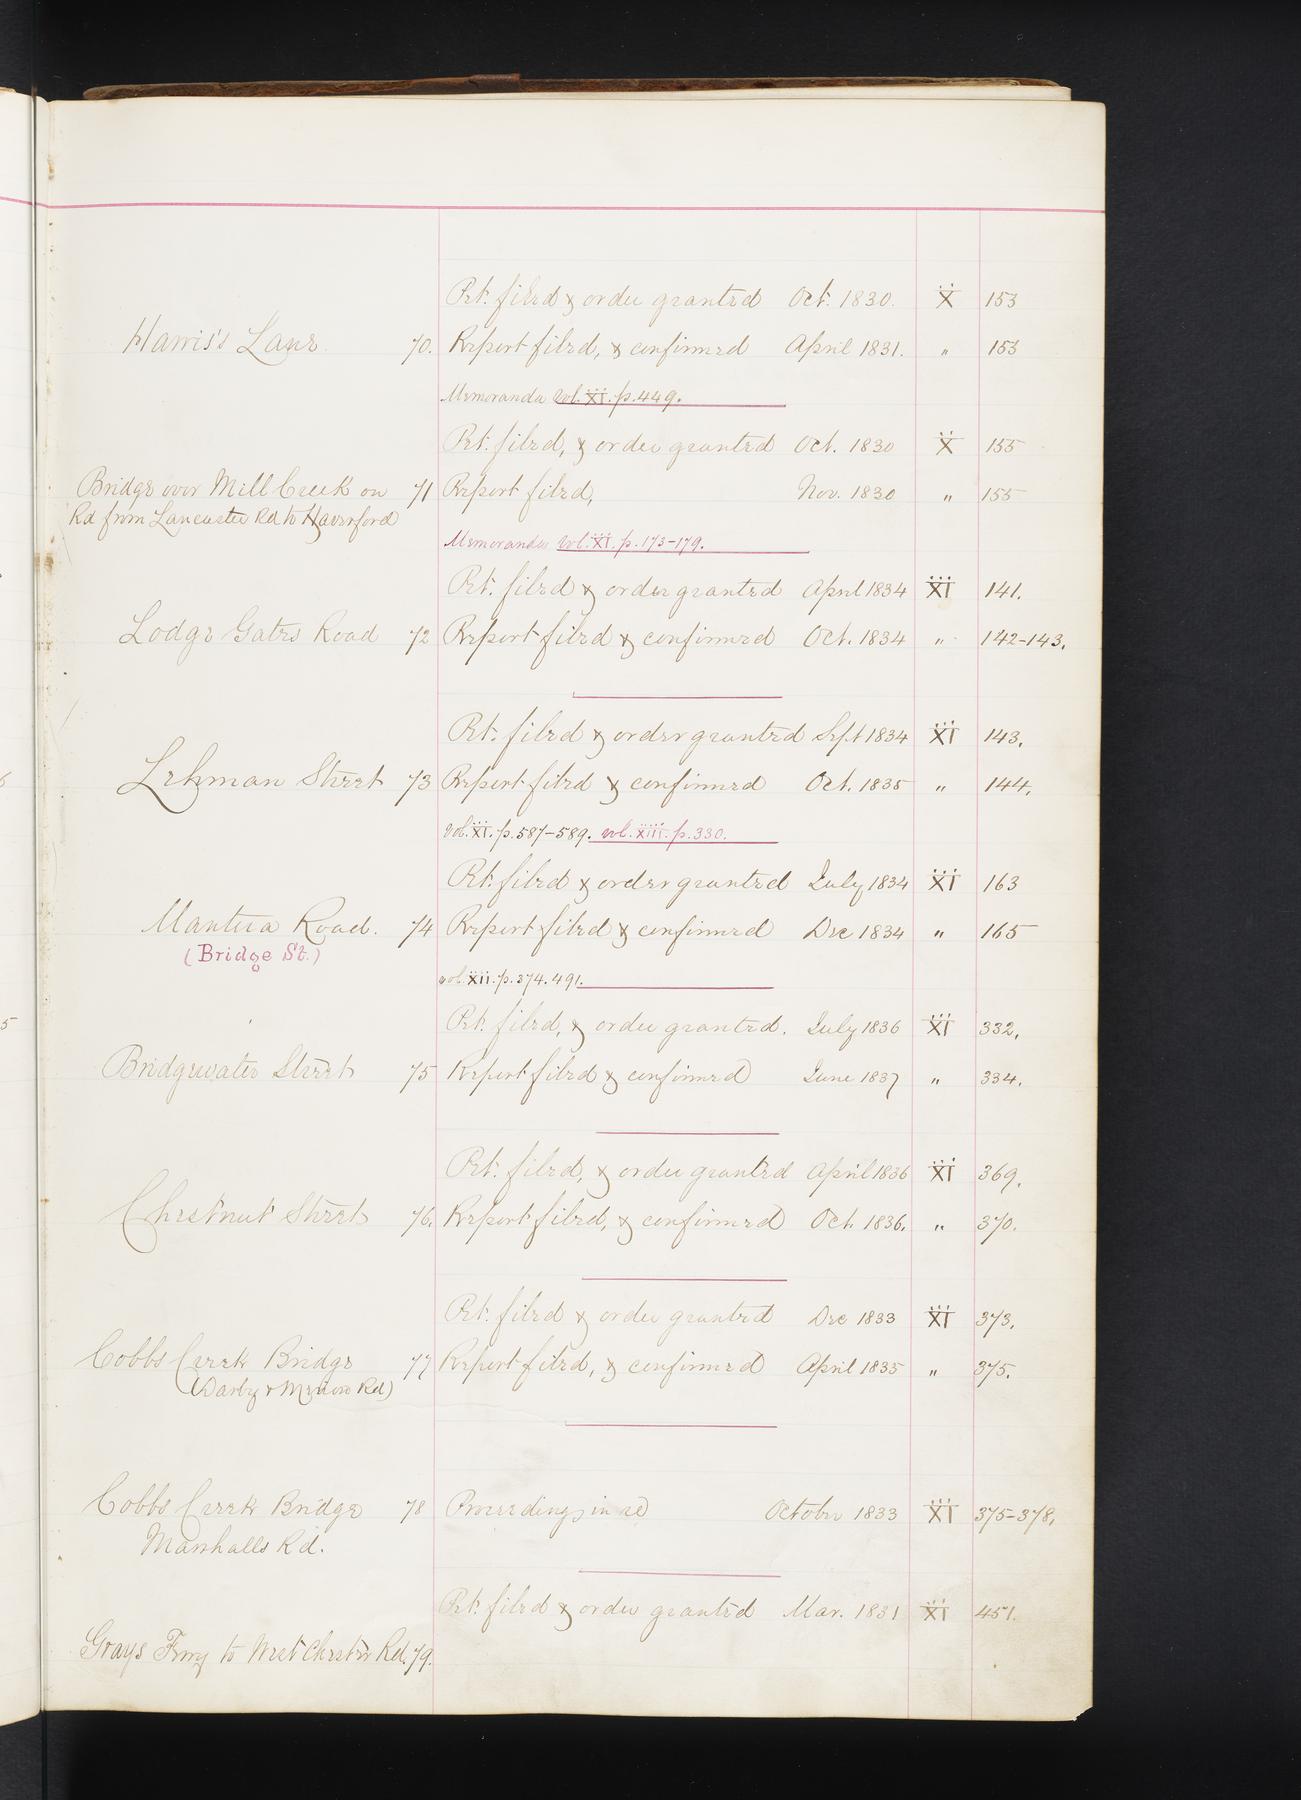 Pet. filed & order granted Oct. 1830. X 153
Harris's Lane 70. Report filed, & confirmed April 1831. " 153
Memoranda Vol. XI. p. 449.
Pet. filed, & order granted Oct. 1830 X 155
Bridge over Mill Creek on 71 Report filed, Nov. 1830 " 155
Rd from Lancaster Rd to Haverford
Memoranda Vol. XI. p. 173-179.
Pet. filed & order granted April 1834 XI 141.
Lodge Gates Road 72 Report filed & confirmed Oct. 1834 " 142-143.
Pet. filed & order granted Sept 1834 XI 143.
Lehman Street 73 Report filed & confirmed Oct. 1835 " 144.
Vol. XI. p. 587-589. vol. XIII. p. 330.
Pet. filed & order granted July 1834 XI 163
Mantua Road. 74 Report filed & confirmed Dec 1834 " 165
(Bridge St.)
vol. XII. p. 374. 491.
Pet. filed, & order granted. July 1836 XI 332.
Bridgewater Street 75 Report filed & confirmed June 1837 " 334.
Pet. filed, & order granted April 1836 XI 369.
Chestnut Street 76. Report filed, & confirmed Oct. 1836. " 370.
Pet. filed & order granted Dec 1833 XI 373.
Cobbs Creek Bridge 77 Report filed, & confirmed April 1835 " 375.
(Darby & Rd)
Cobbs Creek Bridge 78 Proceedings in re October 1833 XI 375-378.
Marshalls Rd.
Pet. filed & order granted Mar. 1831 XI 451.
Grays Ferry to West Chester Rd. 79.